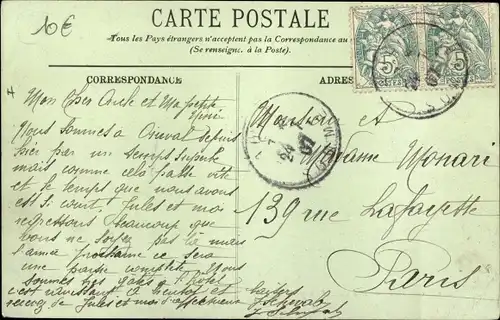 10€
CARTE POSTALE
Tous les Pays étrangers n'acceptent pas la Correspondance au
(Se renseigner à la Poste).
CORRESPONDANCE
ADRES
Mon Cher Oncle et Ma petite
Nous sommes a depuis
hier par un temps superbe
mais comme cela passe vite
et le temps que nous avons
est si court Jules et moi
regrettons beaucoup que
vous ne soyez pas la mais
l'année prochaine ce sera
une partie complète Nous
sommes très gâtés l'hôtel
c'est ravissant A bientôt et baisers
de Jules et moi
Monsieur et
Madame Monari
139 rue Lafayette
Paris
5
5
24
07